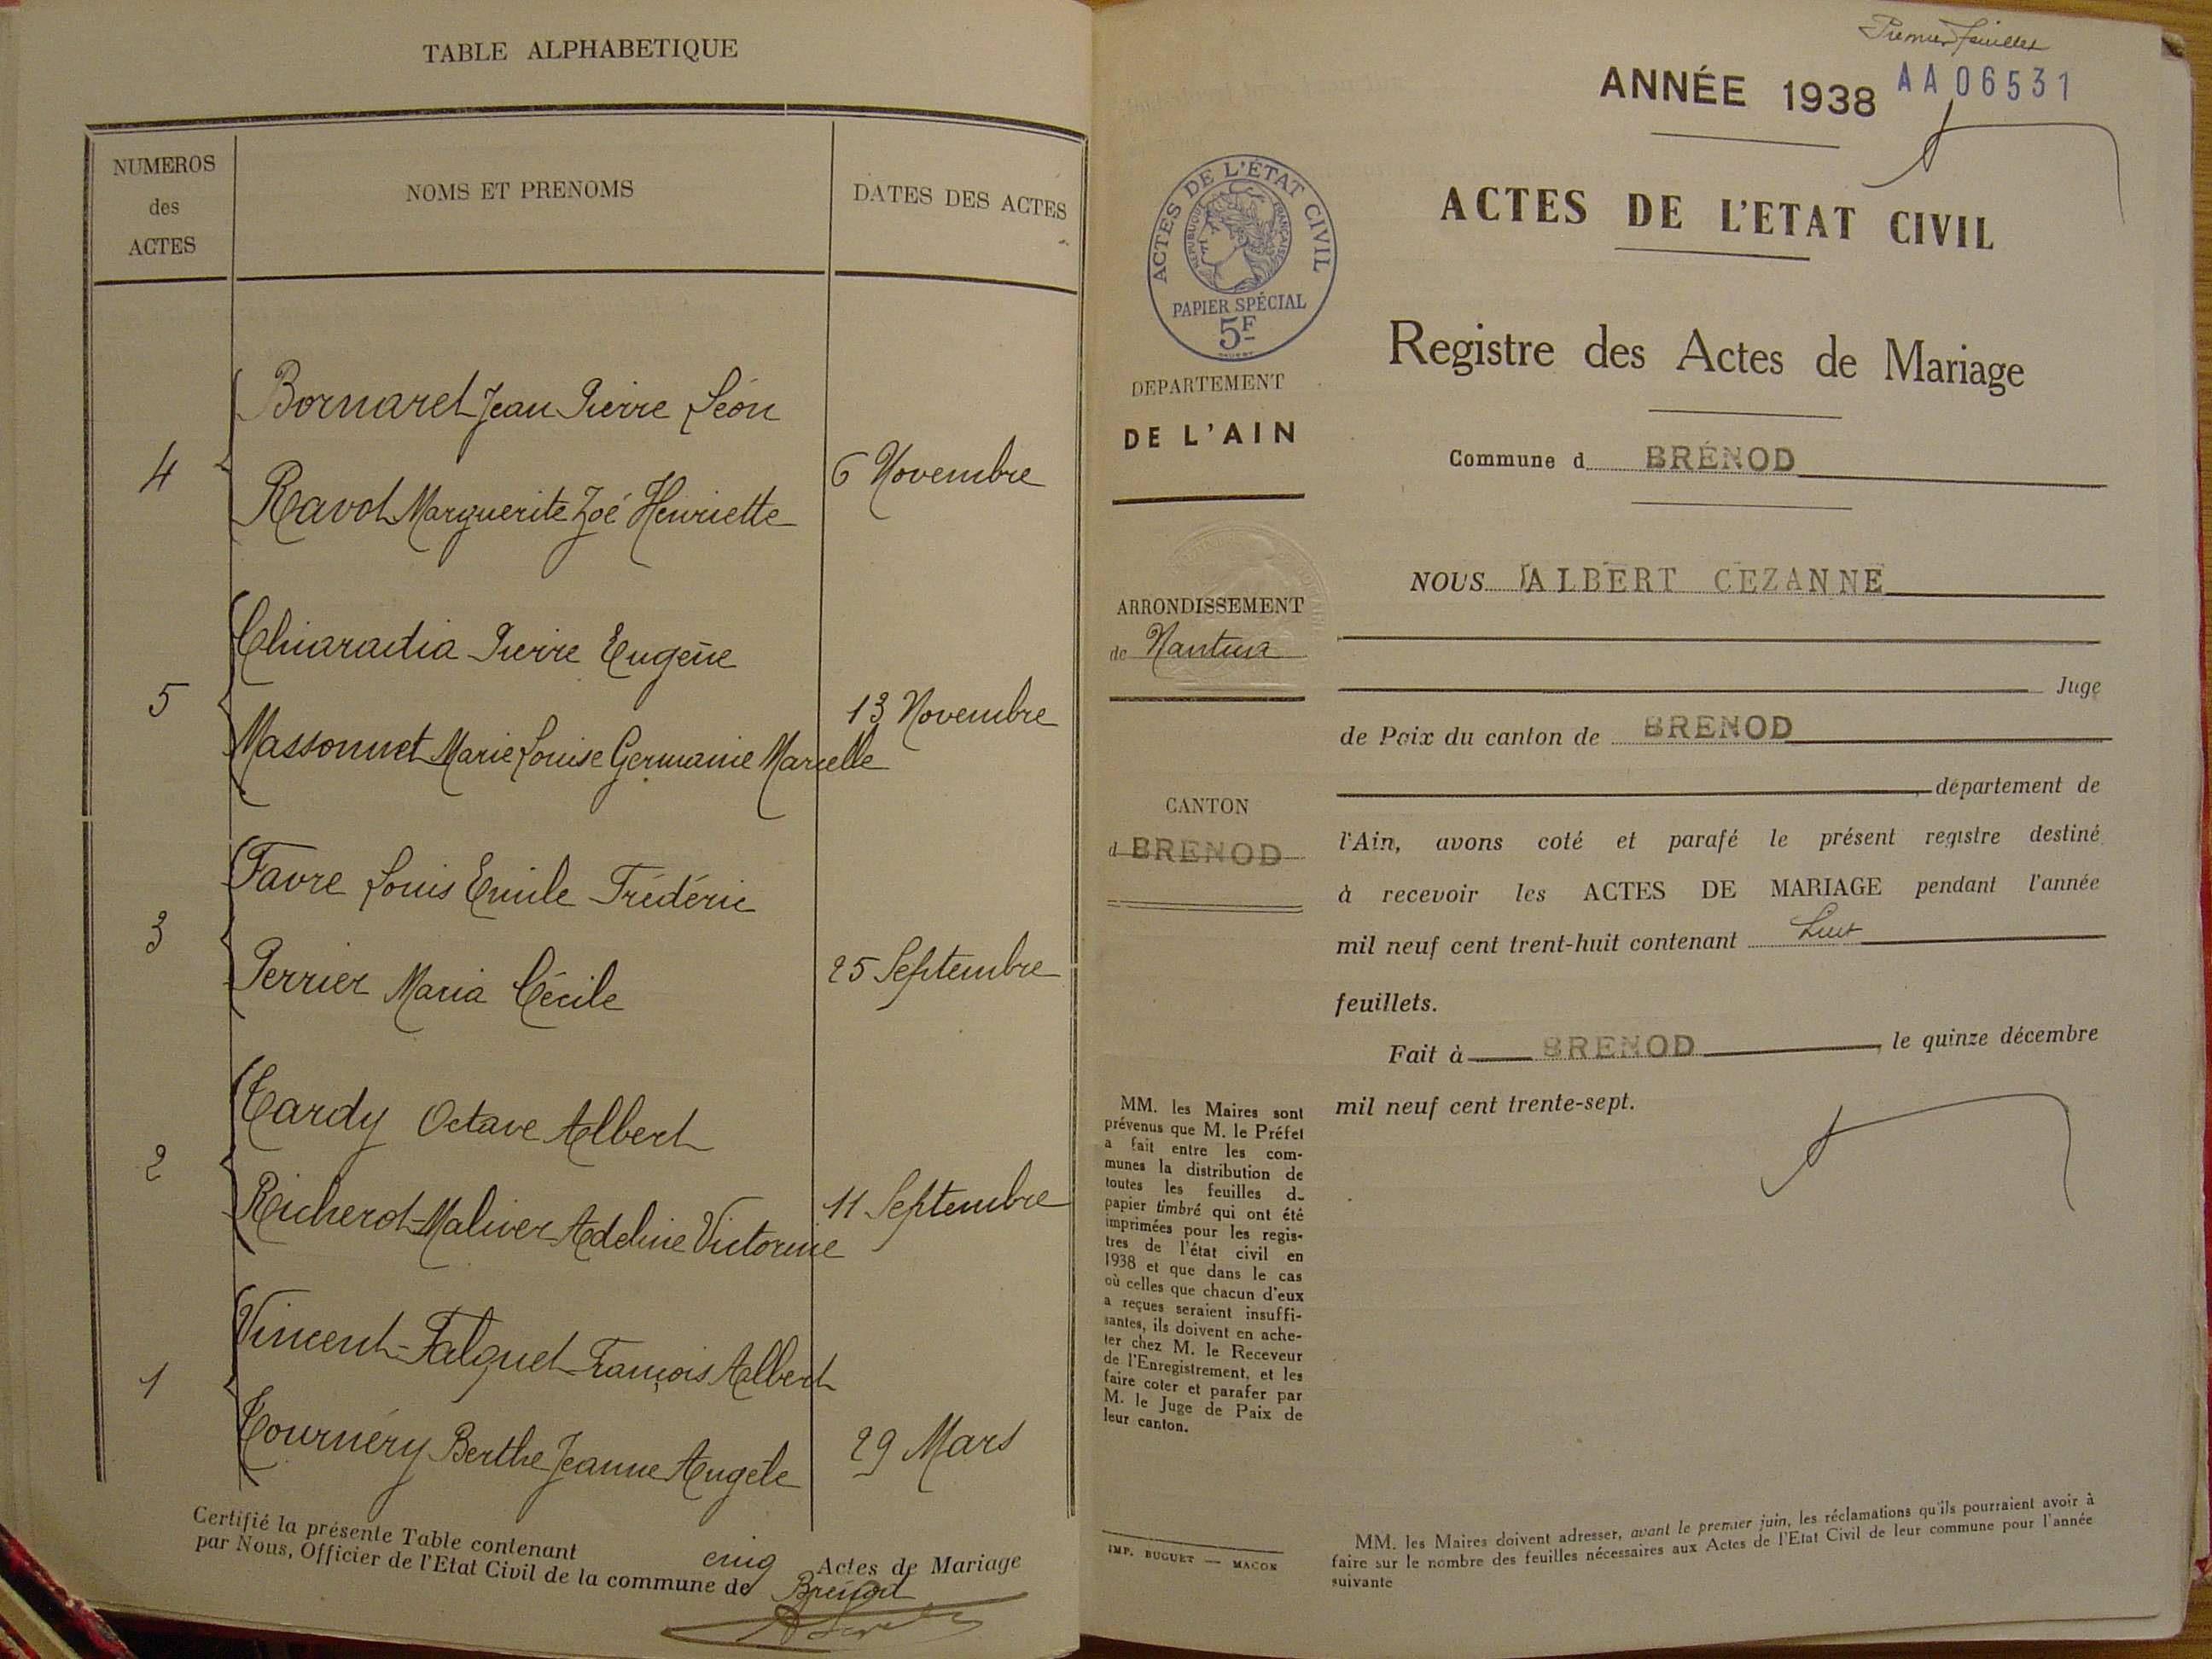 TABLE ALPHABETIQUE
NUMEROS
des
ACTES
NOMS ET PRENOMS
DATES DES ACTES
Bornarel Jean Pierre Léon
4
6 Novembre
Ravot Marguerite Zoé Henriette
Chiaradia Pierre Eugène
5
13 Novembre
Massonnet Marie Louise Germanie Marcelle
Favre Louis Emile Frédéric
3
25 Septembre
Perrier Maria Cécile
Tardy Octave Albert
2
11 Septembre
Richerot-Maliver Adeline Victorine
Vincent-Falquet François Albert
1
29 Mars
Tournéry Berthe Jeanne Angèle
Certifié la présente Table contenant cinq Actes de Mariage
par Nous, Officier de l'Etat Civil de la commune de Brénod
Premier feuillet
ANNÉE 1938
AA06531
ACTES DE L'ÉTAT CIVIL
REPUBLIQUE FRANÇAISE
PAPIER SPÉCIAL
5F
ACTES DE L'ETAT CIVIL
Registre des Actes de Mariage
DEPARTEMENT
DE L'AIN
Commune d BRÉNOD
ARRONDISSEMENT
de Nantua
CANTON
d BRENOD
NOUS ALBERT CEZANNE
Juge
de Paix du canton de BRENOD
, département de
l'Ain, avons coté et parafé le présent registre destiné
à recevoir les ACTES DE MARIAGE pendant l'année
mil neuf cent trent-huit contenant huit
feuillets.
Fait à BRENOD, le quinze décembre
mil neuf cent trente-sept.
MM. les Maires sont
prévenus que M. le Préfet
a fait entre les com-
munes la distribution de
toutes les feuilles d_
papier timbré qui ont été
imprimées pour les regis-
tres de l'état civil en
1938 et que dans le cas
où celles que chacun d'eux
a reçues seraient insuffi-
santes, ils doivent en ache-
ter chez M. le Receveur
de l'Enregistrement, et les
faire coter et parafer par
M. le Juge de Paix de
leur canton.
IMP. BUGUET — MACON
MM. les Maires doivent adresser, avant le premier juin, les réclamations qu'ils pourraient avoir à
faire sur le nombre des feuilles nécessaires aux Actes de l'Etat Civil de leur commune pour l'année
suivante